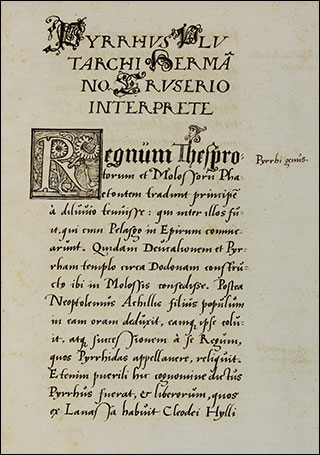 PYRRHUS PLU
TARCHI HERMĀ
NO CRUSERIO
INTERPRETE
Regnum Thespro
torum et Molossorū Pha
etontem tradunt principē
à diluuio tenuisse: qui inter illos fu
it, qui cum Pelasgo in Epirum comme
arunt. Quidam Deucalionem et Pyr
rham templo circa Dodonam constru
cto ibi in Molossis consedisse. Postea
Neoptolemus Achillis filius populum
in eam oram deduxit, eamq. ipse colu
it, atq. successionem à se Regum,
quos Pyrrhidas appellauere, reliquit.
Etenim puerili hic cognomine dictus
Pyrrhus fuerat, & liberorum, quos
ex Lanassa habuit Cleodei Hylli
Pyrrhi genus.